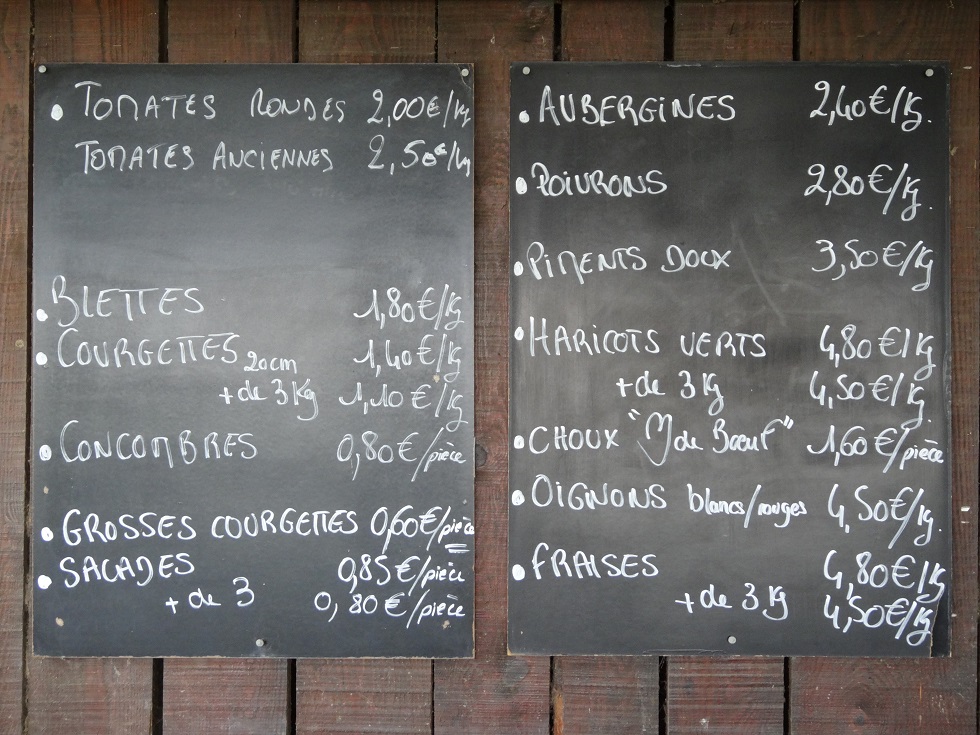 • TOMATES RONDES 2,00€/kg
TOMATES ANCIENNES 2,50€/kg
• BLETTES 1,80€/Kg
• COURGETTES 20cm 1,40€/Kg
+ de 3 Kg 1,10€/Kg
• CONCOMBRES 0,80€/pièce
• GROSSES COURGETTES 0,60€/pièce
• SALADES 0,85€/pièce
+ de 3 0,80€/pièce
• AUBERGINES 2,40€/Kg.
• POIVRONS 2,80€/Kg.
• PIMENTS DOUX 3,50€/Kg
• HARICOTS VERTS 4,80€/Kg
+ de 3 Kg 4,50€/Kg.
• CHOUX "de Bœuf" 1,60€/pièce
• OIGNONS blancs/rouges 4,50€/Kg.
• FRAISES 4,80€/Kg
+ de 3 Kg 4,50€/Kg